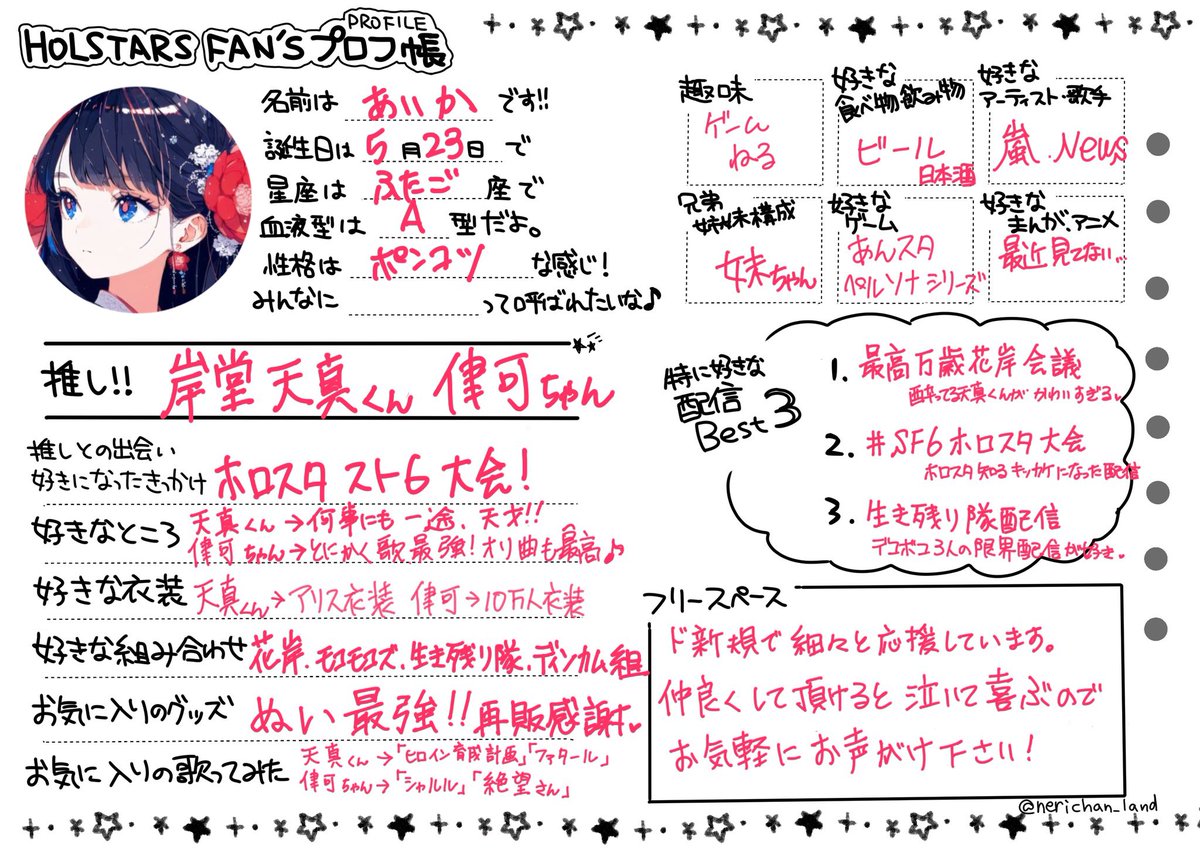 HOLSTARS FAN'S プロフ帳
PROFILE
名前は あいか です!!
誕生日は 5月23日 で
星座は ふたご 座で
血液型は A 型だよ。
性格は ポンコツ な感じ!
みんなに って呼ばれたいな♪
趣味
ゲーム
ねる
好きな
食べ物飲み物
ビール
日本酒
好きな
アーティスト・歌手
嵐.News
兄弟
姉妹構成
妹ちゃん
好きな
ゲーム
あんスタ
ペルソナシリーズ
好きな
まんが、アニメ
最近見てない…
推し!! 岸堂天真くん 律可ちゃん
推しとの出会い
好きになったきっかけ ホロスタ スト6 大会!
好きなところ 天真くん→何事にも一途、天才!!
律可ちゃん→とにかく歌最強!オリ曲も最高♪
好きな衣装 天真くん→アリス衣装 律可→10万人衣装
好きな組み合わせ 花岸、モロモロズ、生き残り隊、ディンカム組
お気に入りのグッズ ぬい最強!!再販感謝。
お気に入りの歌ってみた 天真くん→「ヒロイン育成計画」「ファタール」
律可ちゃん→「シャルル」「絶望さん」
特に好きな
配信
Best3
1. 最高万歳花岸会議
酔ってる天真くんがかわいすぎる。
2. #SF6ホロスタ大会
ホロスタ知るキッカケになった配信
3. 生き残り隊配信
デコボコ3人の限界配信が好き。
フリースペース
ド新規で細々と応援しています。
仲良くして頂けると泣いて喜ぶので
お気軽にお声がけ下さい!
@nerichan_land